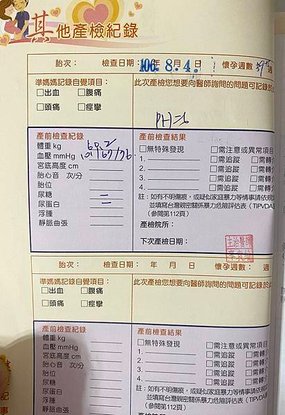 其他產檢紀錄
胎次： 檢查日期：106年8月4日 懷孕週數：
準媽媽記錄自覺項目：
□出血 □腹痛
□頭痛 □痙攣
此次產檢您想要向醫師詢問的問題可記錄於
產前檢查紀錄
體重 kg
血壓 mmHg
宮底高度 cm
胎心音 次/分
胎位
尿糖
尿蛋白
浮腫
靜脈曲張
產前檢查結果
□無特殊發現 □需注意或異常項目
1. □需追蹤 □需轉
2. □需追蹤 □需轉
3. □需追蹤 □需轉
4. □需追蹤 □需轉
註：如有不明傷痕，或疑似家庭暴力等情事請依規
並填寫台灣親密關係暴力危險評估表（TIPVDA
（參閱第112頁）
產檢院所：
下次產檢日期：
胎次： 檢查日期： 年 月 日 懷孕週數： 週
準媽媽記錄自覺項目：
□出血 □腹痛
□頭痛 □痙攣
此次產檢您想要向醫師詢問的問題可記錄於
產前檢查紀錄
體重 kg
血壓 mmHg
宮底高度 cm
胎心音 次/分
胎位
尿糖
尿蛋白
浮腫
靜脈曲張
產前檢查結果
□無特殊發現 □需注意或異常項
1. □需追蹤 □需轉
2. □需追蹤 □需轉
3. □需追蹤 □需轉
4. □需追蹤 □需轉
註：如有不明傷痕，或疑似家庭暴力等情事請依
並填寫台灣親密關係暴力危險評估表（TIPVD
（參閱第112頁）